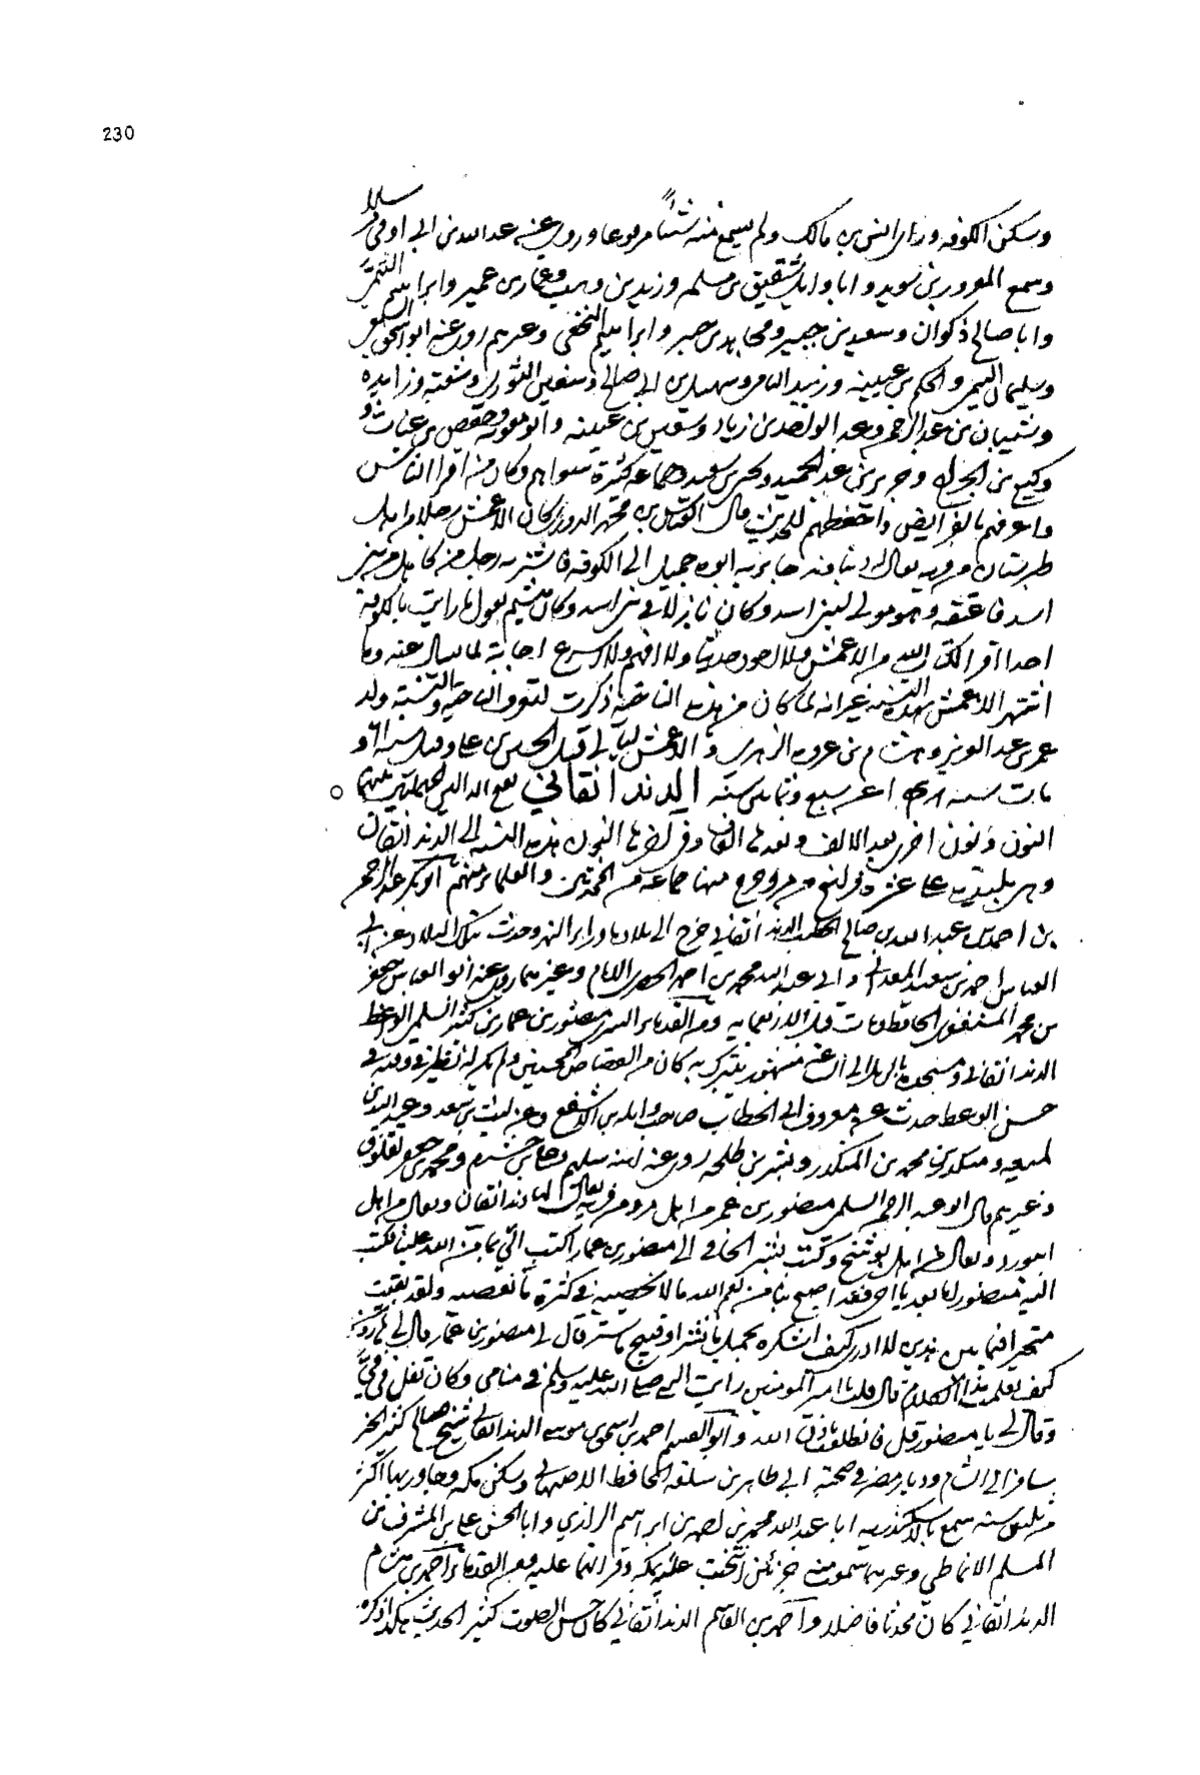 230
وسكن الكوفة ورأى انس بن مالك ولم يسمع منه شيئا مرفوعا وروى عن عبد الله بن ابي اوفى مرسلا
وسمع المعرور بن سويد وابا وائل شقيق بن سلمة وزيد بن وهب وعمارة بن عمير وابراهيم التيمي
وابا صالح ذكوان وسعيد بن جبير ومجاهد بن جبر وابراهيم النخعي وغيرهم روى عنه ابو اسحق السبيعي
وسليمان التيمي والحكم بن عيينه وزبيد اليامي وسهيل بن ابي صالح وسفين الثوري وشعبة وزايدة
وشيبان بن عبد الرحمن وعبد الواحد بن زياد وسفين بن عيينه وابو معوية وحفص بن غياث و
وكيع بن الجراح وجرير بن عبد الحميد ويحيى بن سعيد وجماعة كثيرة سواهم وكان من اقرا الناس
واعرفهم بالفرايض واحفظهم للحديث قال العباس بن محمد الدوري كان الاعمش رجلا من اهل
طبرستان من قرية يقال لها دنباوند جا به ابوه حميلا الى الكوفة فاشتراه رجل من كاهل من بني
اسد فاعتقه وهو مولى لبني اسد وكان نازلا في بني اسد وكان هشيم يقول ما رايت بالكوفة
احدا اقرا لكتاب الله من الاعمش ولا اجود حديثا ولا افهم ولا اسرع اجابة لما يسال عنه وما
اشتهر الاعمش بهذه النسبة غير انه لما كان من هذه الناحية ذكرت لتعرف الناحية والنسبة ولد
عمر بن عبد العزيز وهشام بن عروة والزهري و والاعمش ليالي قتل الحسين بن علي وقتل سنة ٦١ و
مات سنة ثمان واربعين سنة الدندانقاني بفتح الدال المهملتين بينهما
النون ونون اخرى بعد الالف وبعدها القاف وفي اخرها النون هذه النسبة الى الدندانقان
وهي بليدة على عشرة فراسخ من مرو خرج منها جماعة من المحدثين والعلماء منهم ابو بكر عبد الرحمن
بن احمد بن عبد الله بن صالح الخطيب الدندانقاني خرج الى بلاد ما وراء النهر وحدث بتلك البلاد عن ابي
العباس احمد بن سعيد المعداني وابي عبد الله محمد بن احمد الخضري الامام وغيرهما روى عنه ابو العباس جعفر
بن محمد المستغفري الحافظ ومات قبل الاربعماية ومن القدماء ابو السري منصور بن عمار بن كثير السلمي الواعظ
الدندانقاني ومسجده بها الى الساعة مشهور يتبرك به كان من القصاص المحسنين ولم يكن له نظير في وقته في
حسن الوعظ حدث عن معروف ابي الخطاب صاحب واثلة بن الاسقع وعن ليث بن سعد وعبد الله بن
لهيعة ومنكدر بن محمد بن المنكدر وبشير بن طلحة روى عنه ابنه سليم وعلي بن خشرم ومحمد بن جعفر لقلوق
وغيرهم قال ابو عبد الرحمن السلمي منصور بن عمار من اهل مرو من قرية يقال لها دندانقان ويقال من اهل
ابيورد ويقال من اهل بوشنج وكتب بشر الحافي الى منصور بن عمار اكتب الي بما من الله علينا فكتب
اليه منصور اما بعد يا اخي فقد اصبح بنا من نعم الله ما لا نحصيه في كثرة ما نعصيه ولقد بقيت
متحيرا فيما بين هذين لا ادري كيف اشكره لجميل ما نشر او قبيح ما ستر قال لي منصور بن عمار قال لي هارون
كيف تعلمت هذا الكلام قال قلت يا امير المومنين رايت النبي صلى الله عليه وسلم في منامي وكان تفل في في
وقال لي يا منصور قل فانطلقت باذن الله وابو القسم احمد بن احمد بن موسى الدندانقاني شيخ صالح كثير الخير
سافر الى الشام وديار مصر في صحبة ابي طاهر بن سلفه الحافظ الاصبهاني وسكن مكة وجاور بها اكثر
من ثلثين سنة سمع بالاسكندرية ابا عبد الله محمد بن احمد بن ابراهيم الرازي وابا الحسن علي بن المشرف بن
المسلم الانماطي وغيرهما سمعت منه جزئين انتخبت عليه بمكة وقراتهما عليه ومن القدماء احمد بن هشام
الدندانقاني كان محدثا فاضلا واحمد بن القاسم الدندانقاني كان حسن الصوت كثير الحديث هكذا ذكره